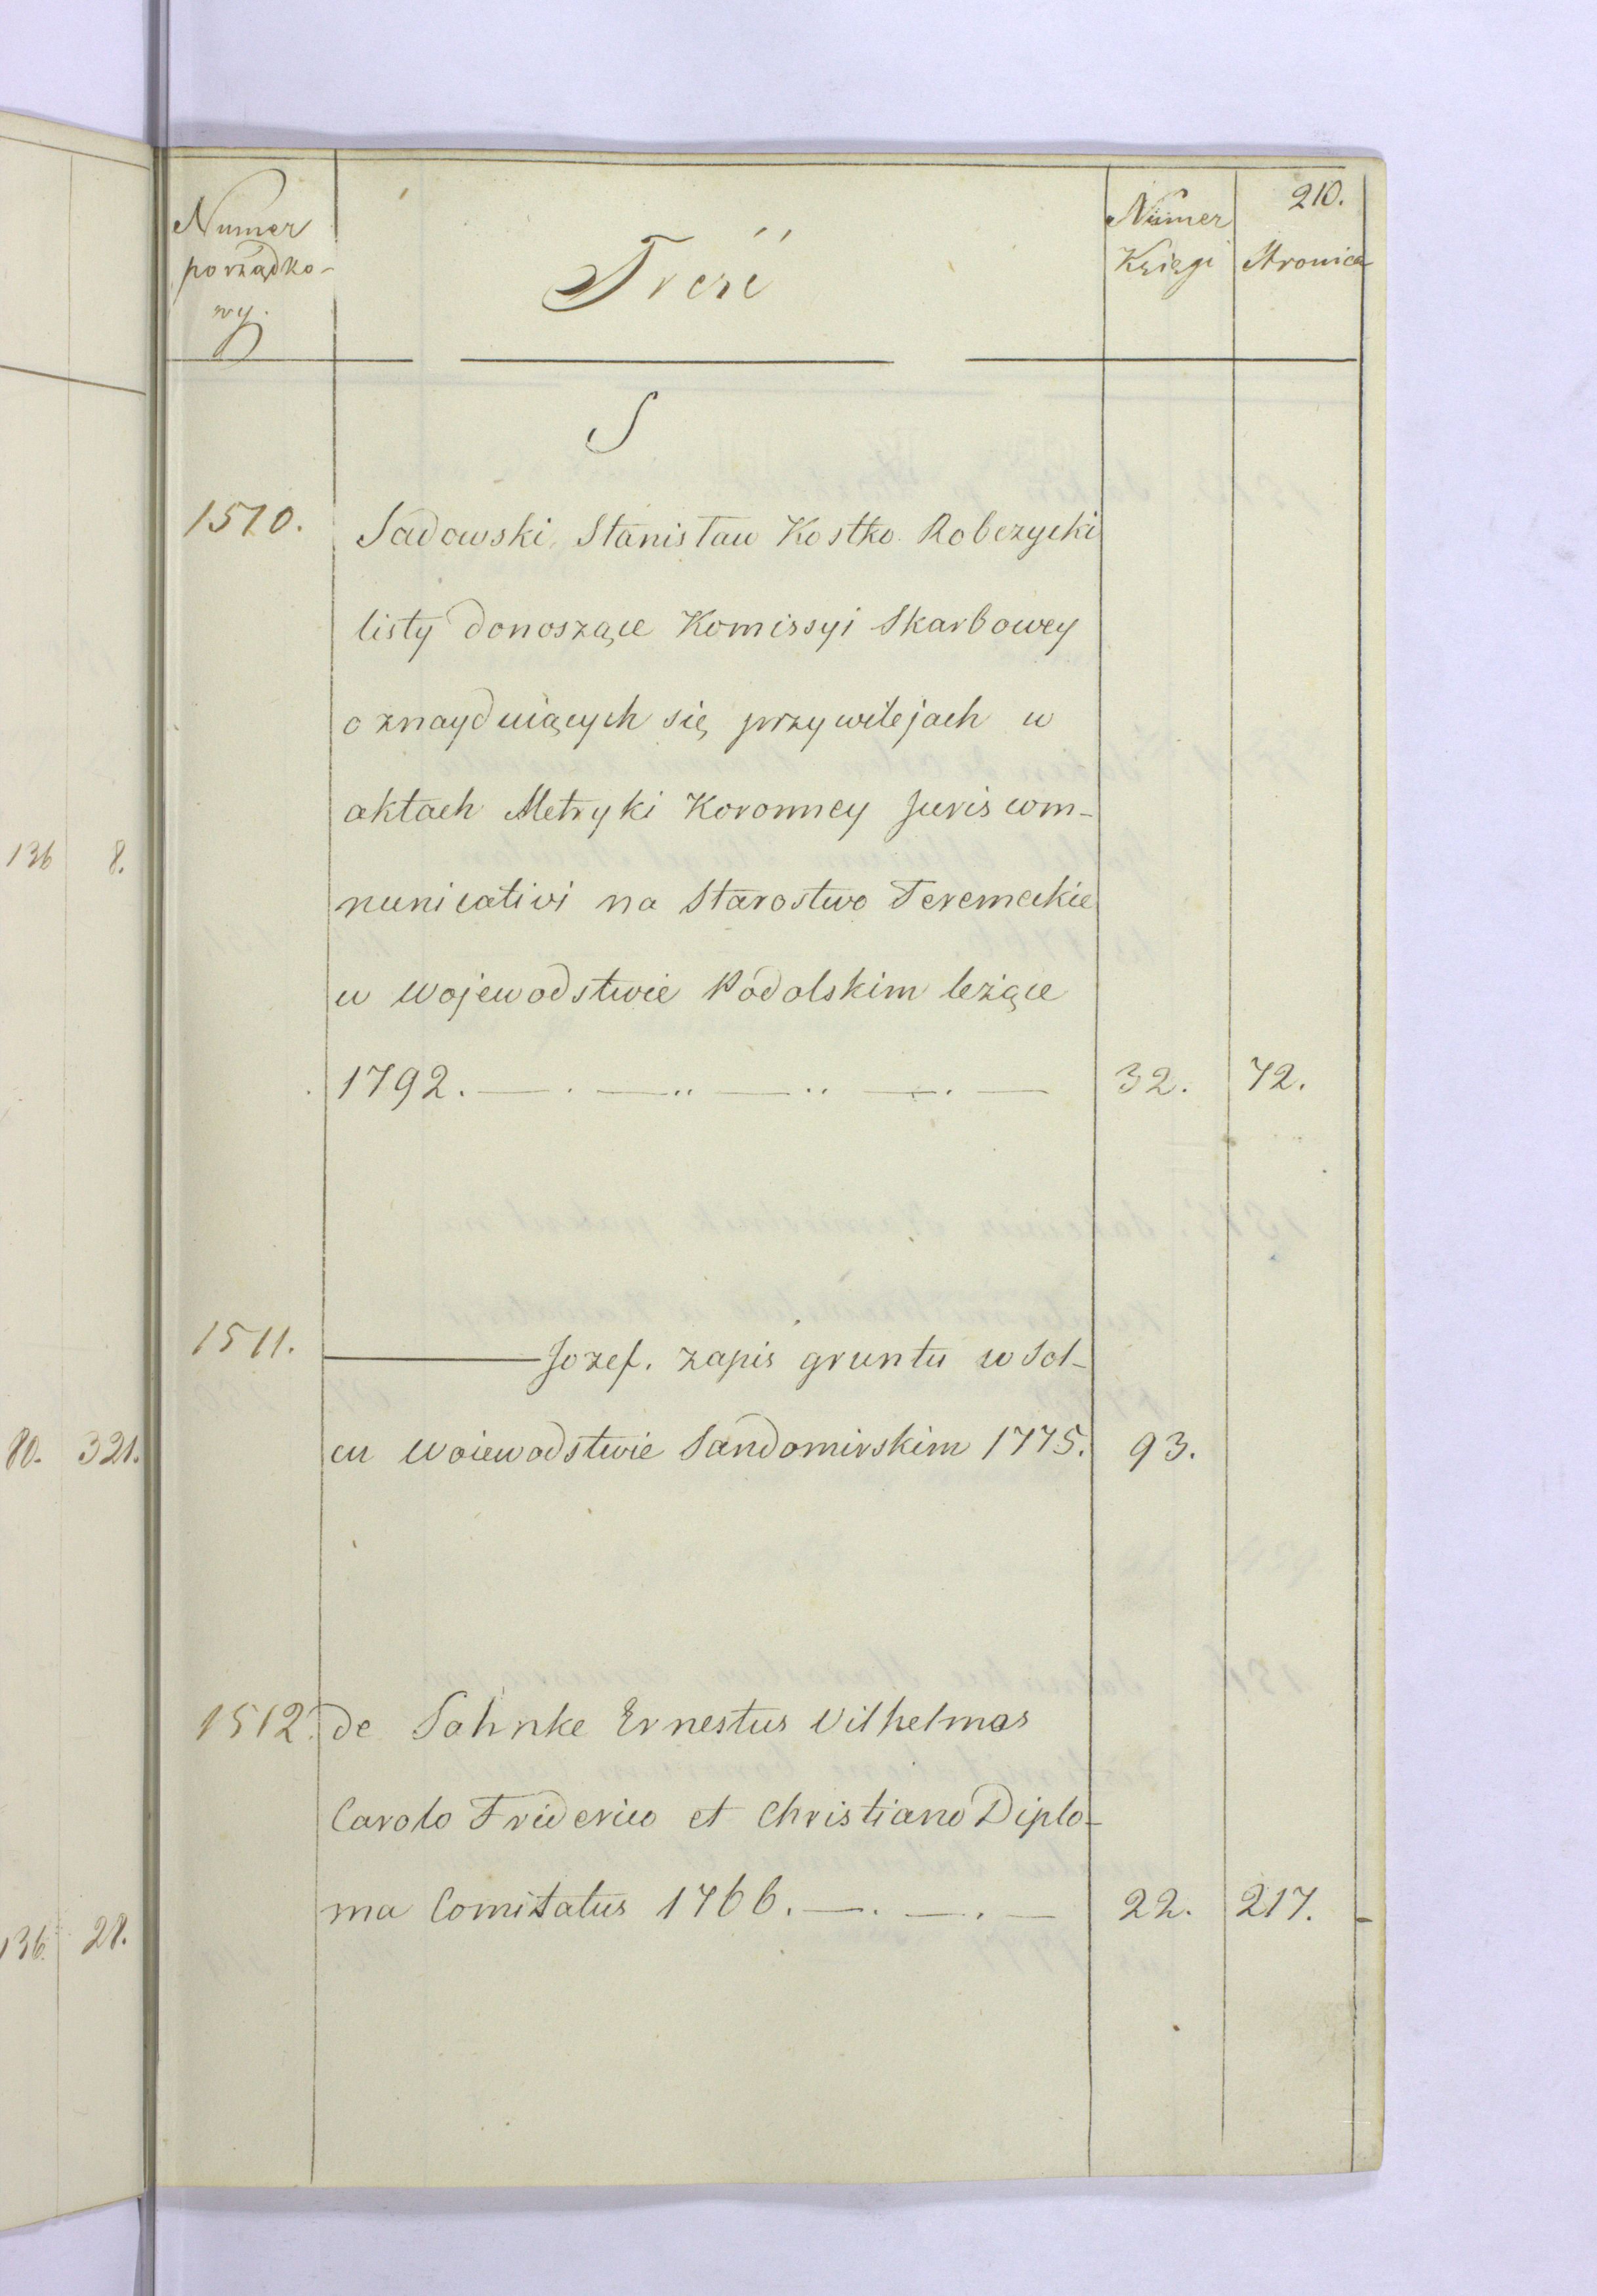 210.
Numer porządko-
wy.
Treść
Numer Księgi
Stronica
S
1510. Sadowski Stanisław Kostko Robczycki
listy donoszące Komissyi Skarbowey
o znayduiących się przywilejach w
aktach Metryki Koronney Juris com-
nunicativi na Starostwo Teremeckie
w Wojewodstwie Podolskim leżące
1792. — . — .. — .. — . — 32. 72.
1511. ——— Jozef. zapis gruntu w Sol-
cu Woiewodstwie Sandomirskim 1775. 93.
1512. de Sahnke Ernestus Vilhelmos
Carolo Friderico et Christiano Diplo-
ma Comitatus 1766. — . — . — 22. 217.
136 8.
80. 321.
136. 28.